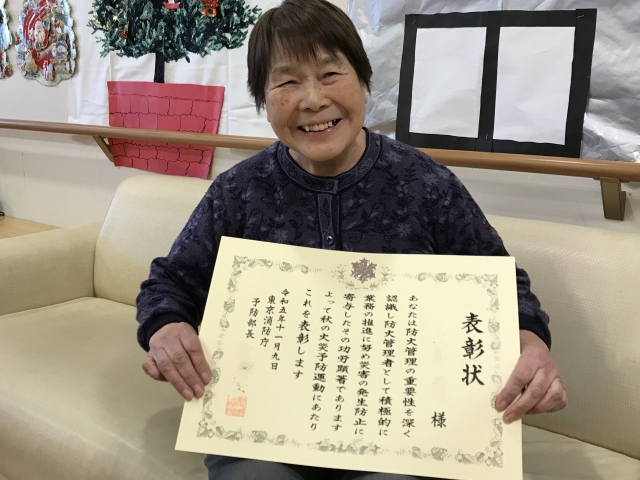 表彰状
様
あなたは防火管理の重要性を深く
認識し防火管理者として積極的に
業務の推進に努め災害の発生防止に
寄与したその功労顕著であります
よって秋の火災予防運動にあたり
これを表彰します
令和五年十一月九日
東京消防庁
予防部長